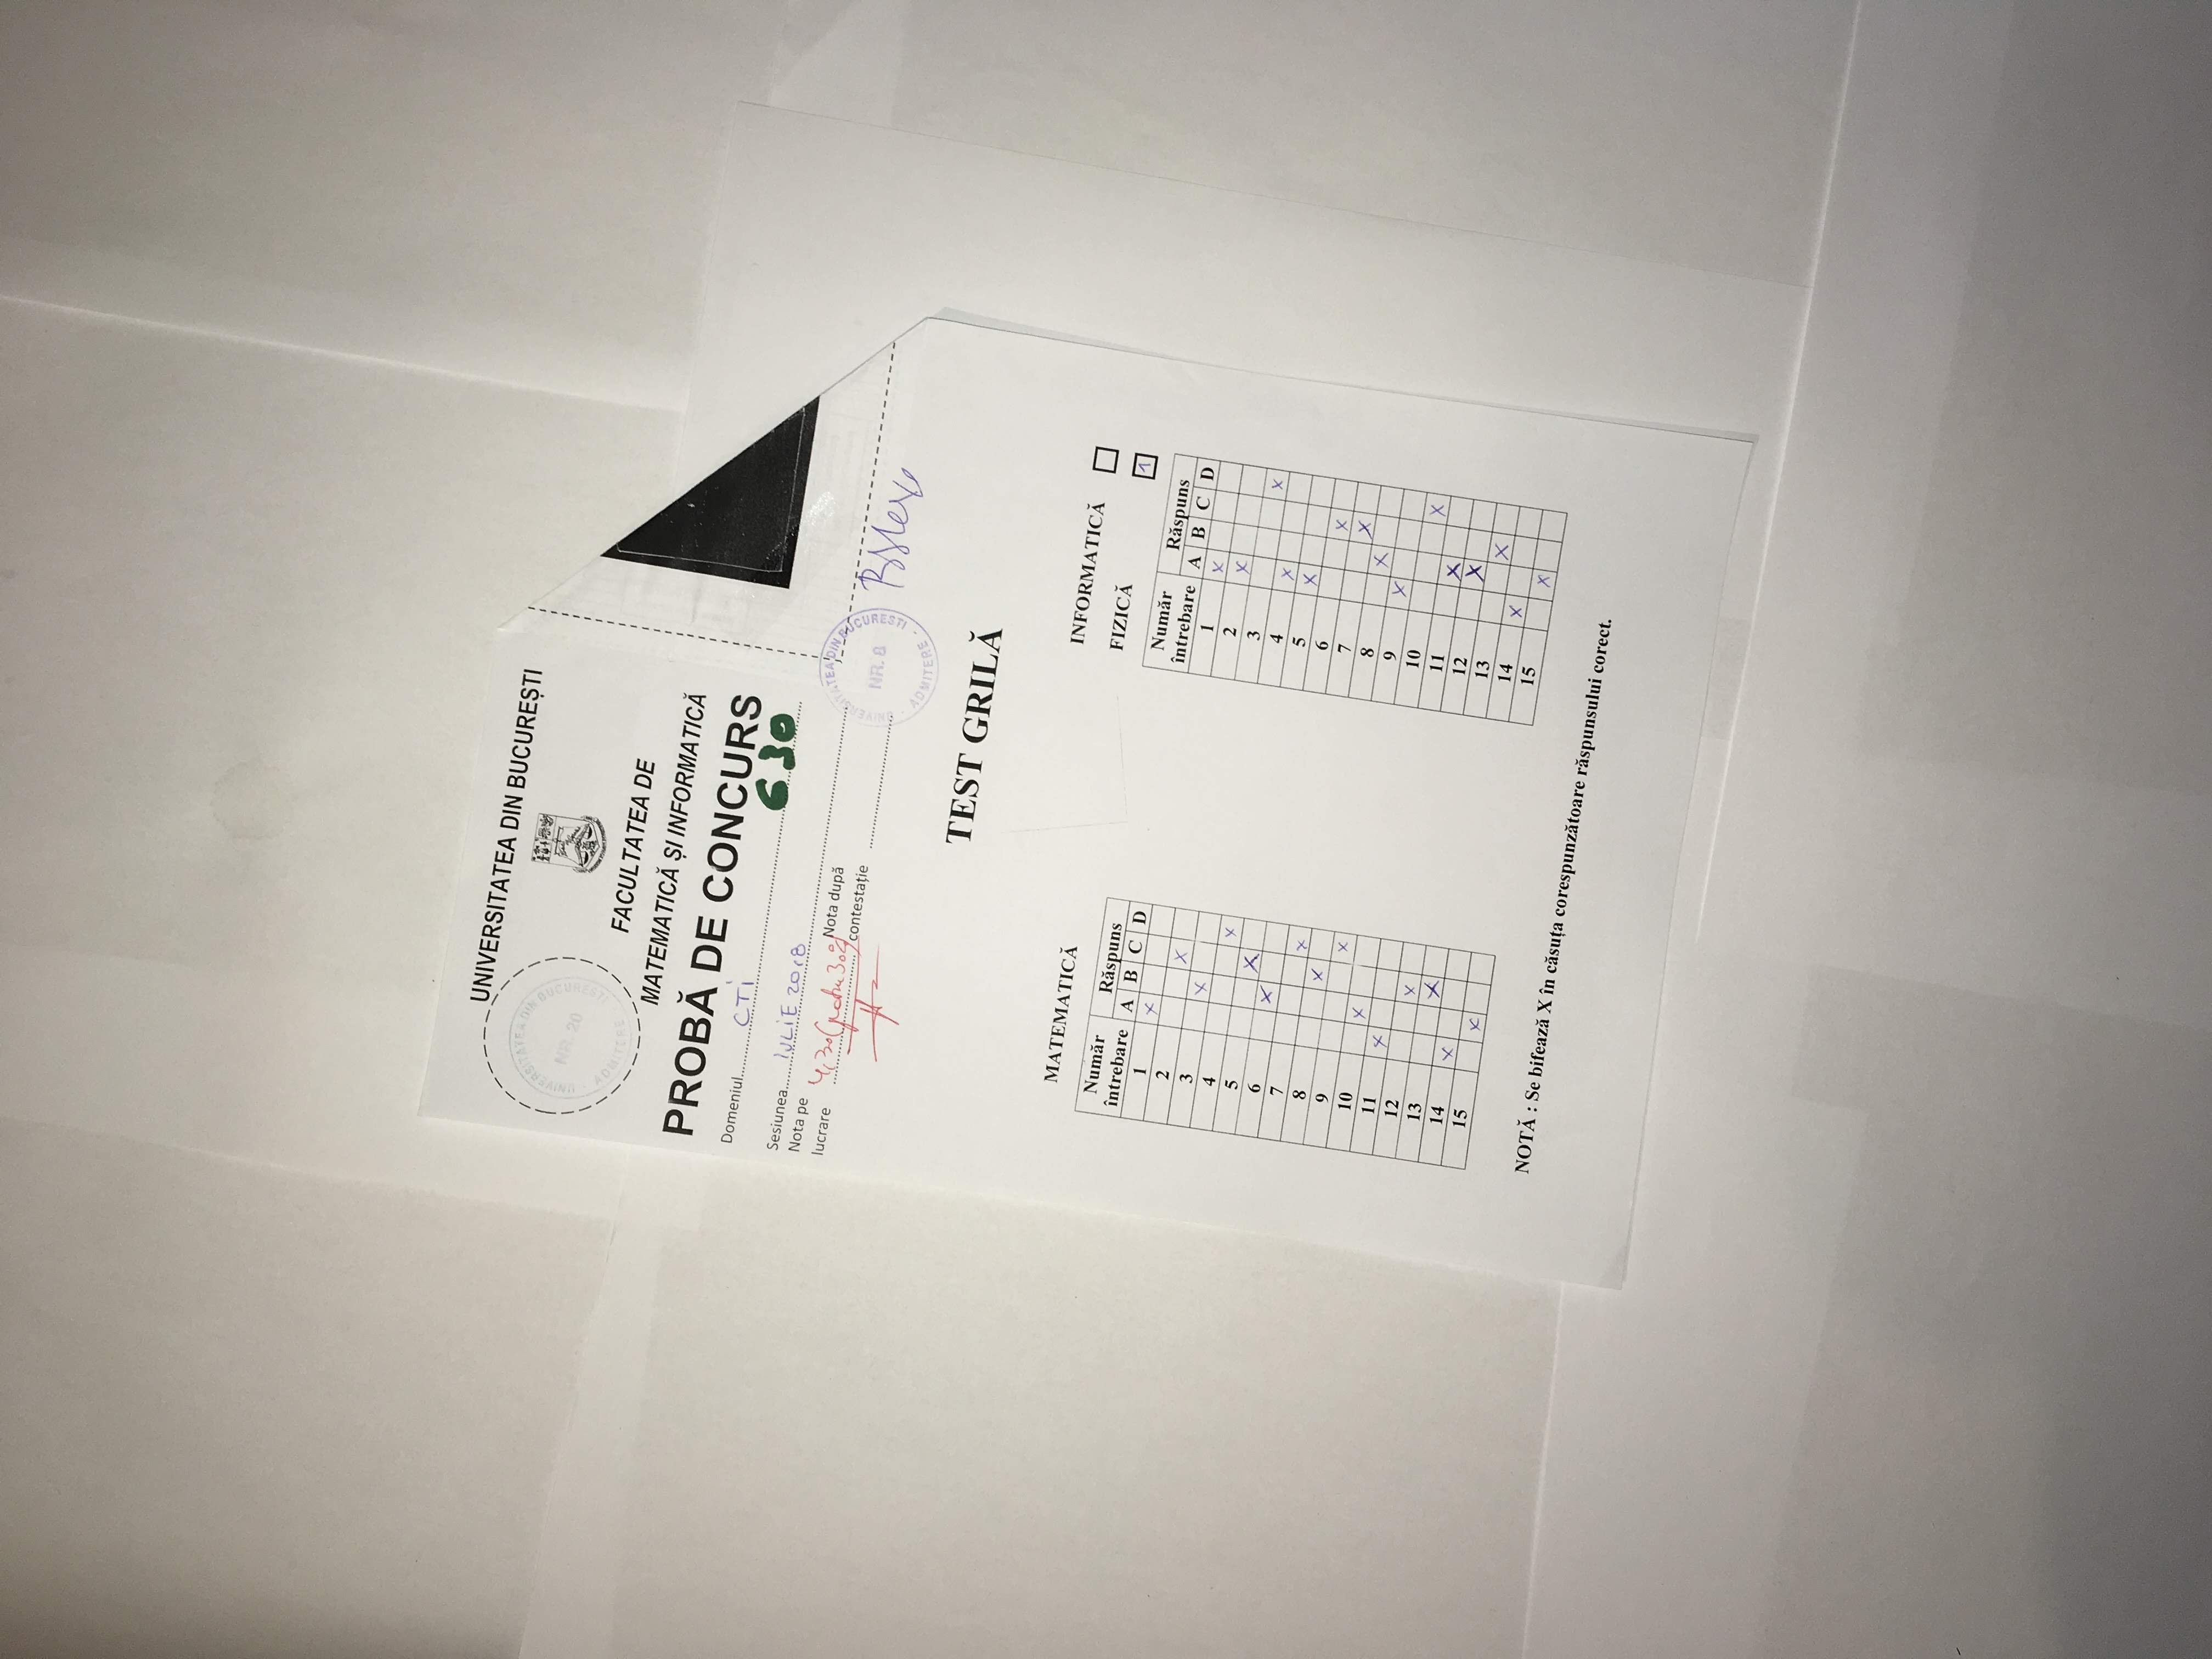 UNIVERSITATEA DIN BUCUREȘTI
UNIVERSITATEA DIN BUCUREȘTI
NR. 20
ADMITERE
FACULTATEA DE
MATEMATICĂ ȘI INFORMATICĂ
PROBĂ DE CONCURS
Domeniul CTI
630
Sesiunea IULIE 2018
Nota pe lucrare 4,30
Nota după contestație
UNIVERSITATEA DIN BUCUREȘTI
NR. 8
ADMITERE
TEST GRILĂ
MATEMATICĂ
Număr întrebare Răspuns
A B C D
1 X
2 X
3 X
4 X
5 X
6 X
7 X
8 X
9 X
10 X
11 X
12 X
13 X
14 X
15 X
INFORMATICĂ
FIZICĂ 1
Număr întrebare Răspuns
A B C D
1 X
2 X
3 X
4 X
5 X
6 X
7 X
8 X
9 X
10 X
11 X
12 X
13 X
14 X
15 X
NOTĂ : Se bifează X în căsuța corespunzătoare răspunsului corect.